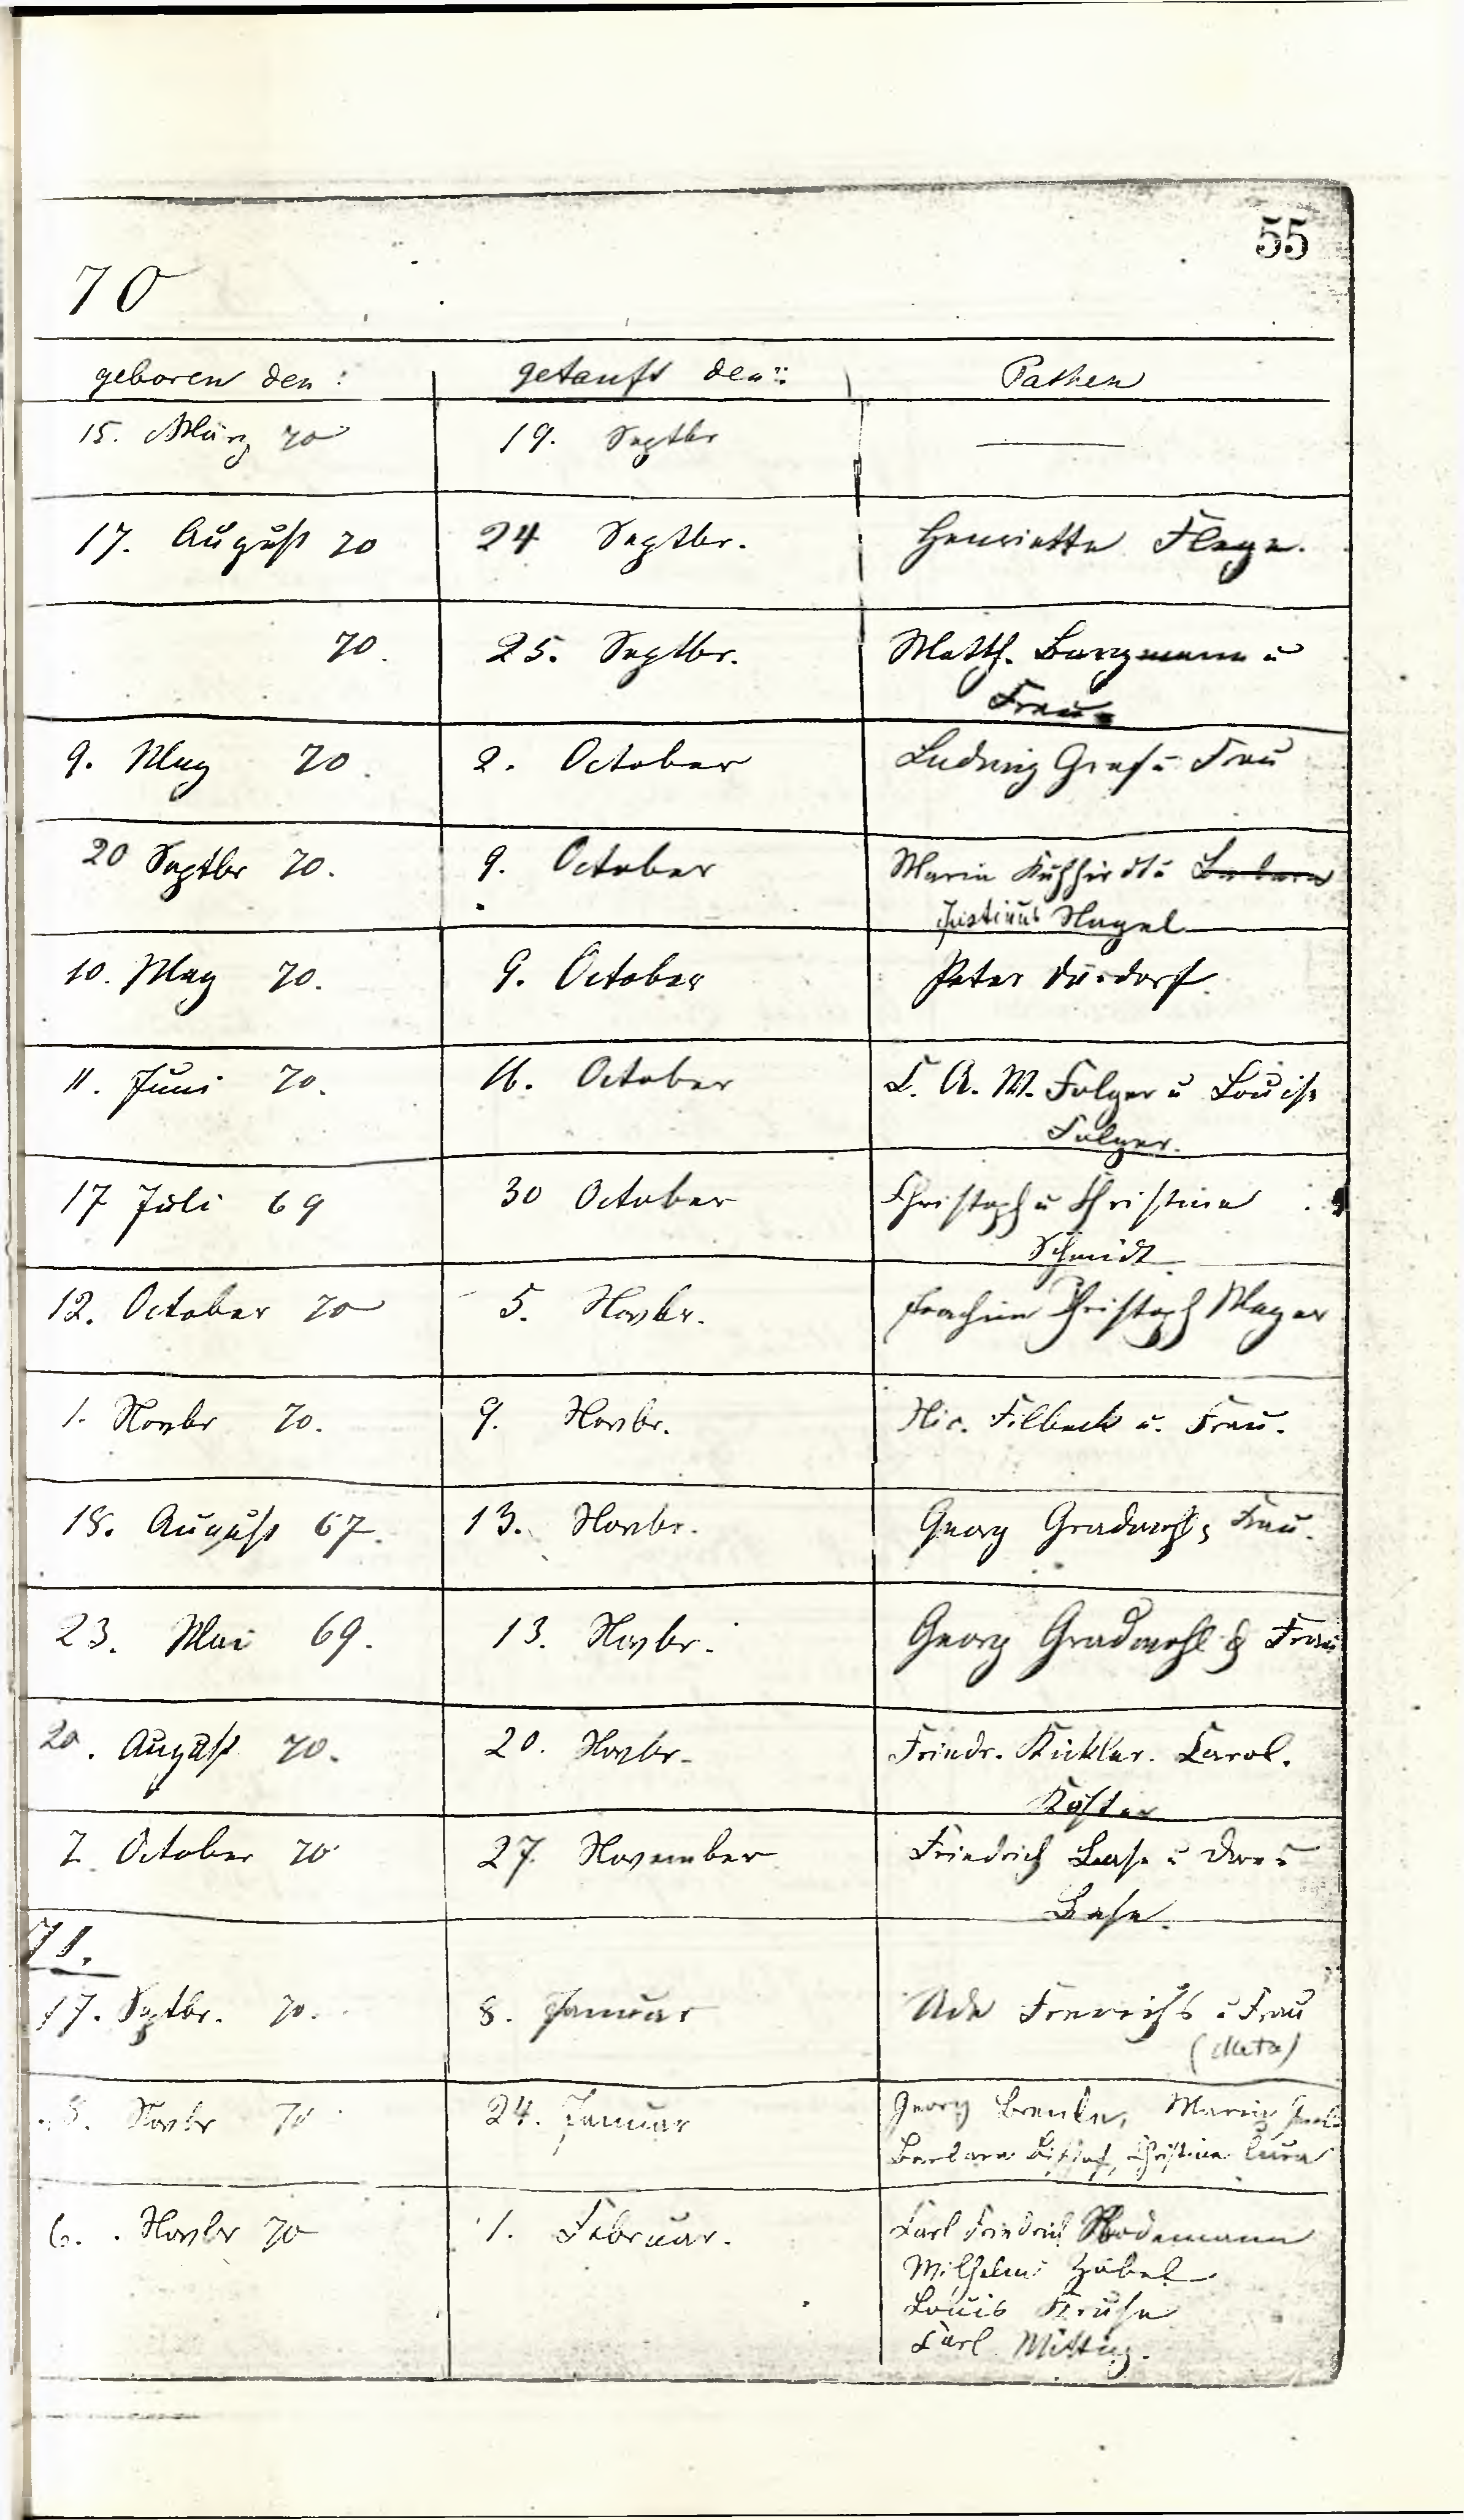 55
70
geboren den: getauft den: Pathen
15. März 70 19. Septbr
17. August 70 24 Septbr. Henriette Flege.
70. 25. Septbr. Matth. Bargmann u
Frau
9. May 70. 2. October Ludwig Graf u Frau
20 Septbr 70. 9. October Maria
Justinus Nagel
10. May 70. 9. October Peter
11. Juni 70. 16. October C. A. W. Folger u Louise
Folger.
17 Juli 69 30 October Christoph u Christine
Schmidt
12. October 70 5. Novbr. Joachim Christoph Meyer
1. Novbr 70. 9. Novbr. Nic. Filbeck u. Frau.
18. August 67. 13. Novbr. Georg Gradwohl, Frau.
23. Mai 69. 13. Novbr. Georg Gradwohl & Frau
20. August 70. 20. Novbr. Friedr. Kückler. Carol.
Köster
7. October 70 27. November Friedrich Base u
Base.
71.
17. Septbr. 70. 8. Januar Frerichs u Frau
(Meta)
8. Novbr 70 24. Januar Georg Maria
Barbara Bischof, Christine
6. Novbr 70 1. Februar. Carl Friedrich Rodemann
Wilhelm Zobel
Louis Kruse
Carl Mittag.